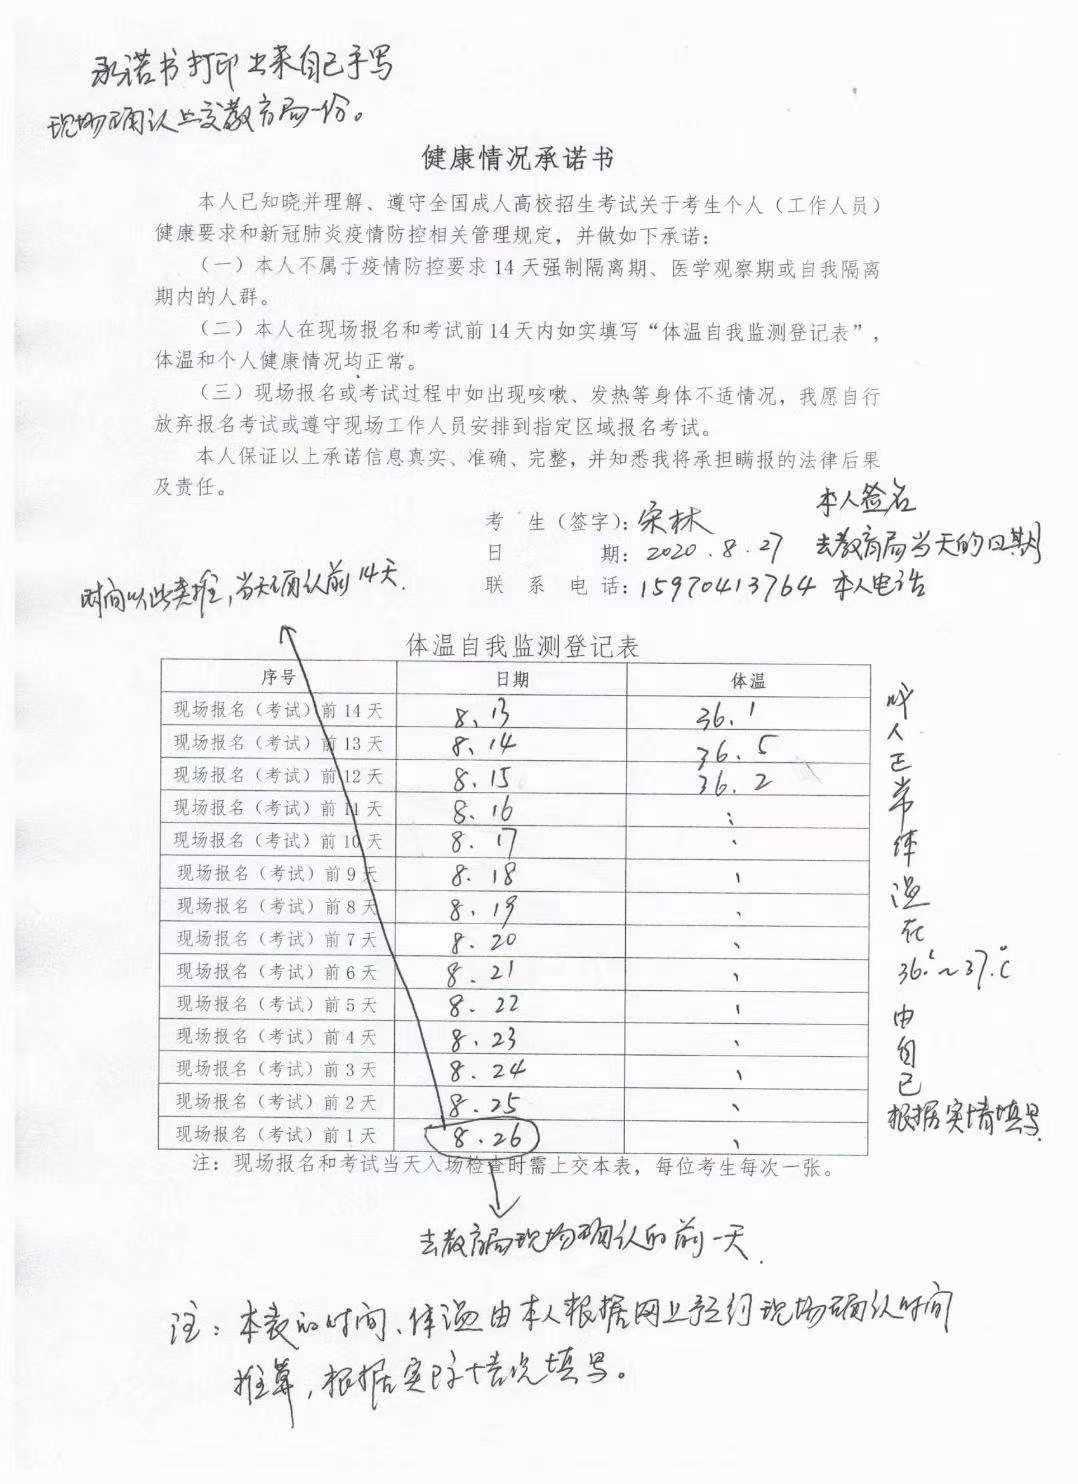 承诺书打印出来自己手写
现场确认上交教育局一份。
健康情况承诺书
本人已知晓并理解、遵守全国成人高校招生考试关于考生个人（工作人员）
健康要求和新冠肺炎疫情防控相关管理规定，并做如下承诺：
（一）本人不属于疫情防控要求14天强制隔离期、医学观察期或自我隔离
期内的人群。
（二）本人在现场报名和考试前14天内如实填写“体温自我监测登记表”，
体温和个人健康情况均正常。
（三）现场报名或考试过程中如出现咳嗽、发热等身体不适情况，我愿自行
放弃报名考试或遵守现场工作人员安排到指定区域报名考试。
本人保证以上承诺信息真实、准确、完整，并知悉我将承担瞒报的法律后果
及责任。
考 生（签字）：宋林 本人签名
日 期：2020.8.27 去教育局当天的日期
联 系 电 话：15970413764 本人电话
时间以此类推，当天确认前14天.
体温自我监测登记表
序号 日期 体温
现场报名（考试）前14天 8.13 36.1
现场报名（考试）前13天 8.14 36.5
现场报名（考试）前12天 8.15 36.2
现场报名（考试）前11天 8.16
现场报名（考试）前10天 8.17
现场报名（考试）前9天 8.18
现场报名（考试）前8天 8.19
现场报名（考试）前7天 8.20
现场报名（考试）前6天 8.21
现场报名（考试）前5天 8.22
现场报名（考试）前4天 8.23
现场报名（考试）前3天 8.24
现场报名（考试）前2天 8.25
现场报名（考试）前1天 8.26
人正常体温在
36.℃~37.℃
由自己
根据实情填写
注：现场报名和考试当天入场检查时需上交本表，每位考生每次一张。
去教育局现场确认的前一天.
注：本表的时间、体温由本人根据网上预约现场确认时间
推算，根据实际情况填写。